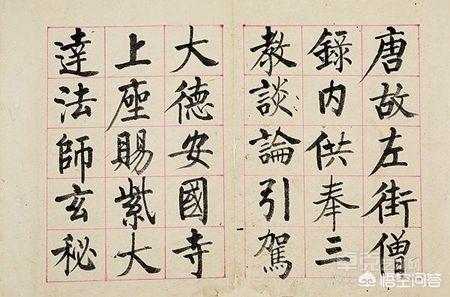 唐故左街僧
錄内供奉三
教談論引駕
大德安國寺
上座賜紫大
達法師玄秘
悟空问答